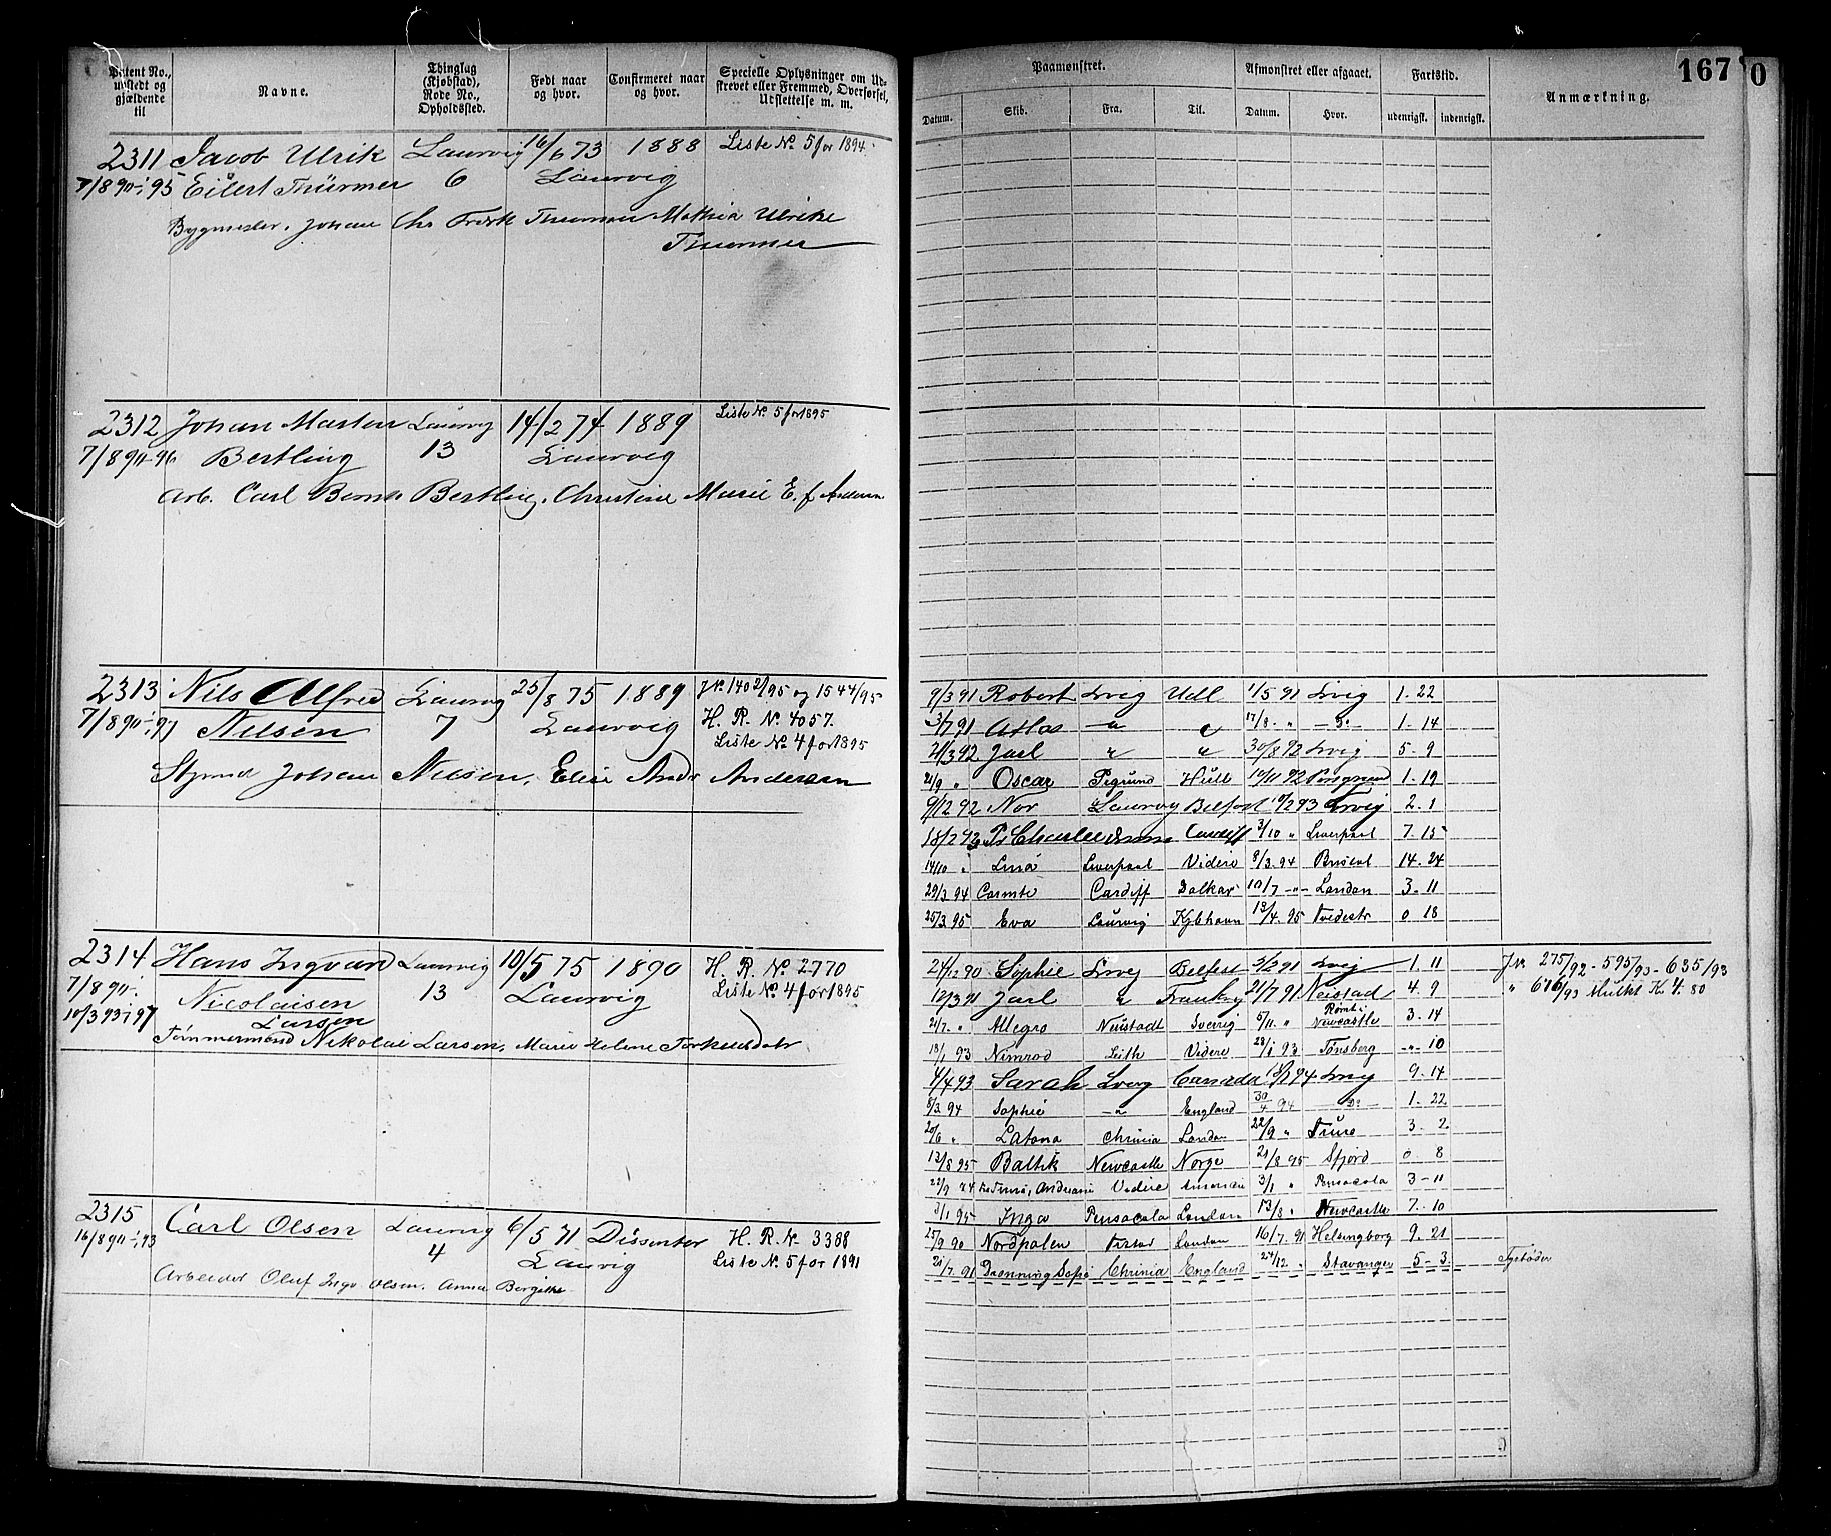 167
0
Patent No., udstedt og gjældende til
Navne.
Thinglag (Kjøbstad), Rode No., Opholdssted.
Født naar og hvor.
Confirmeret naar og hvor.
Specielle Oplysninger om Udskrevet eller Fremmed, Overførsel, Udslettelse m. m.
Paamønstret.
Afmønstret eller afgaaet.
Fartstid.
Anmærkning.
Datum. Skib. Fra. Til. Datum. Hvor. udenrigsk. indenrigsk.
2311 Jacob Ulrik Laurvig 16/6 73 1888 Liste No. 5 for 1894.
7/8 90 - 95 Eilert Thürmer 6 Laurvig
Bygmester. Johan Chr Fredk Thurmer Mathia Ulrike
Thurmer
2312 Johan Marten Laurvig 14/2 74 1889 Liste No. 5 for 1895
7/8 90-96 Bertling 13 Laurvig
Arb. Carl Bernh Bertling. Christine Marie E. f Andersen
2313 Nils Alfred Laurvig 25/8 75 1889 J No. 1402/95 og 1544/95
7/8 90 - 97 Nilsen 7 Laurvig H. R. No. 4057.
Liste No. 4 for 1895
Styrmd Johan Nilsen, Elise Andr Andersen
9/3 91 Robert Lvig Hull 1/5 91 Lvig 1. 22
3/7 91 Atlas " " 17/8 " Do 1 - 14
21/3 92 Jarl " " 30/8 92 Lvig 5 - 9
21/9 " Oscar Psgrund Hull 10/11 92 Porsgrund 1 - 19
9/12 92 Nor Laurvig Belfast 10/2 93 Lvig 2. 1
18/2 93 Cardiff 3/10 " Liverpool 7. 15
14/10 " Lina Liverpool Videre 8/3. 94 Bristol 14. 24
29/3 94 Cardiff 10/7 " London 3. 11
25/3 95 Eva Laurvig Kjbhavn 13/4. 95 Tvedestr 0 18
2314 Hans Ingvard Laurvig 10/5 75 1890 H. R. No. 2770
7/8 90 - Nicolaisen 13 Laurvig Liste No. 4 for 1895
10/3 93 - 97 Larsen
Tømmermand Nikolai Larsen, Marie Helene Torkildsdatr
24/12 90 Sophie Lvig Belfast 5/2 91 Lvig 1. 11 J No. 275/92 - 595/93 - 635/93
12/3 91 Jarl " Frankrig 21/7 91 Neistad 4. 9 " 676/93 Mulkt Kr 4. 80
21/7. " Allegro Neustadt Sverrig 5/11. " Rømt i Newcastle 3. 14
18/1 93 Nimrod Leith Videre 28/1 93 Tønsberg " 10
4/4 93 Sarah Lvig Canada 18/1 94 Lvig 9. 14
8/3 94 Sophie " England 30/4 94 Do 1. 22
20/6 " Latona Chrinia London 22/9 " Truro 3. 2
13/8 95 Baltik Newcastle Norge 21/8 95 Sfjord 0. 8
22/9 94 Videre 3/1 " Pensacola 3 - 11
3/1 95 Inga Pensacola London 13/8 " Newcastle 7. 10
2315 Carl Olsen Laurvig 6/5 71 Dissenter H. R. No. 3388
16/8 90 - 93 4 Laurvig Liste No. 5 for 1891
Arbeider Oluf Ingv Olsen. Anna Bergithe
25/9 90 Nordpolen London 16/7. 91 Helsingborg 9. 21
21/7. 91 Dronning Sofie Chrinia England 24/12. " Stavanger 5 - 3